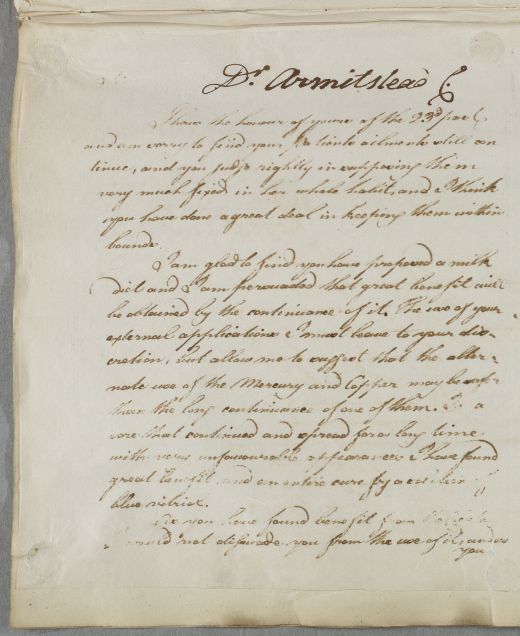 Dr. Armitstead
I have the honour of yours of the 23d past
and am sorry to find your Patients ailments still con
tinue, and you judge rightly in supposing them
very much fixed in her whole habit, and I think
you have done a great deal in keeping them within
bounds.
I am glad to find you have proposed a milk
Diet and I am perswaded that great benefit will
be obtained by the continuance of it. The use of your
external applications I must leave to your dis-
cretion, but allow me to suggest that the alter-
nate use of the Mercury and Copper may be safer
than the long continuance of one of them. In a
sore that continued and spread for a long time
with very unfavourable appearances I have found
great benefit and an entire cure by a
blue vitriol.
you have found benefit from
would not disswade you from the use of it, and as
you